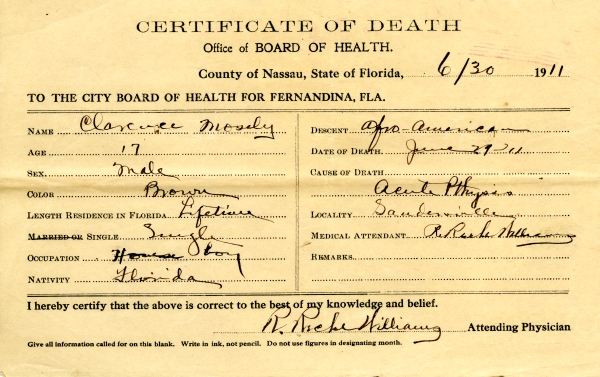 CERTIFICATE OF DEATH
Office of BOARD OF HEALTH.
County of Nassau, State of Florida, 6/30 1911
TO THE CITY BOARD OF HEALTH FOR FERNANDINA, FLA.
NAME Clarence Mosely
AGE 17
SEX Male
COLOR Brown
LENGTH RESIDENCE IN FLORIDA Lifetime
MARRIED OR SINGLE Single
OCCUPATION House boy
NATIVITY Florida
DESCENT Afro-American
DATE OF DEATH June 29 11
CAUSE OF DEATH
Acute Pthysis
LOCALITY
MEDICAL ATTENDANT R. Williams
REMARKS
I hereby certify that the above is correct to the best of my knowledge and belief.
R. Williams Attending Physician
Give all information called for on this blank. Write in ink, not pencil. Do not use figures in designating month.